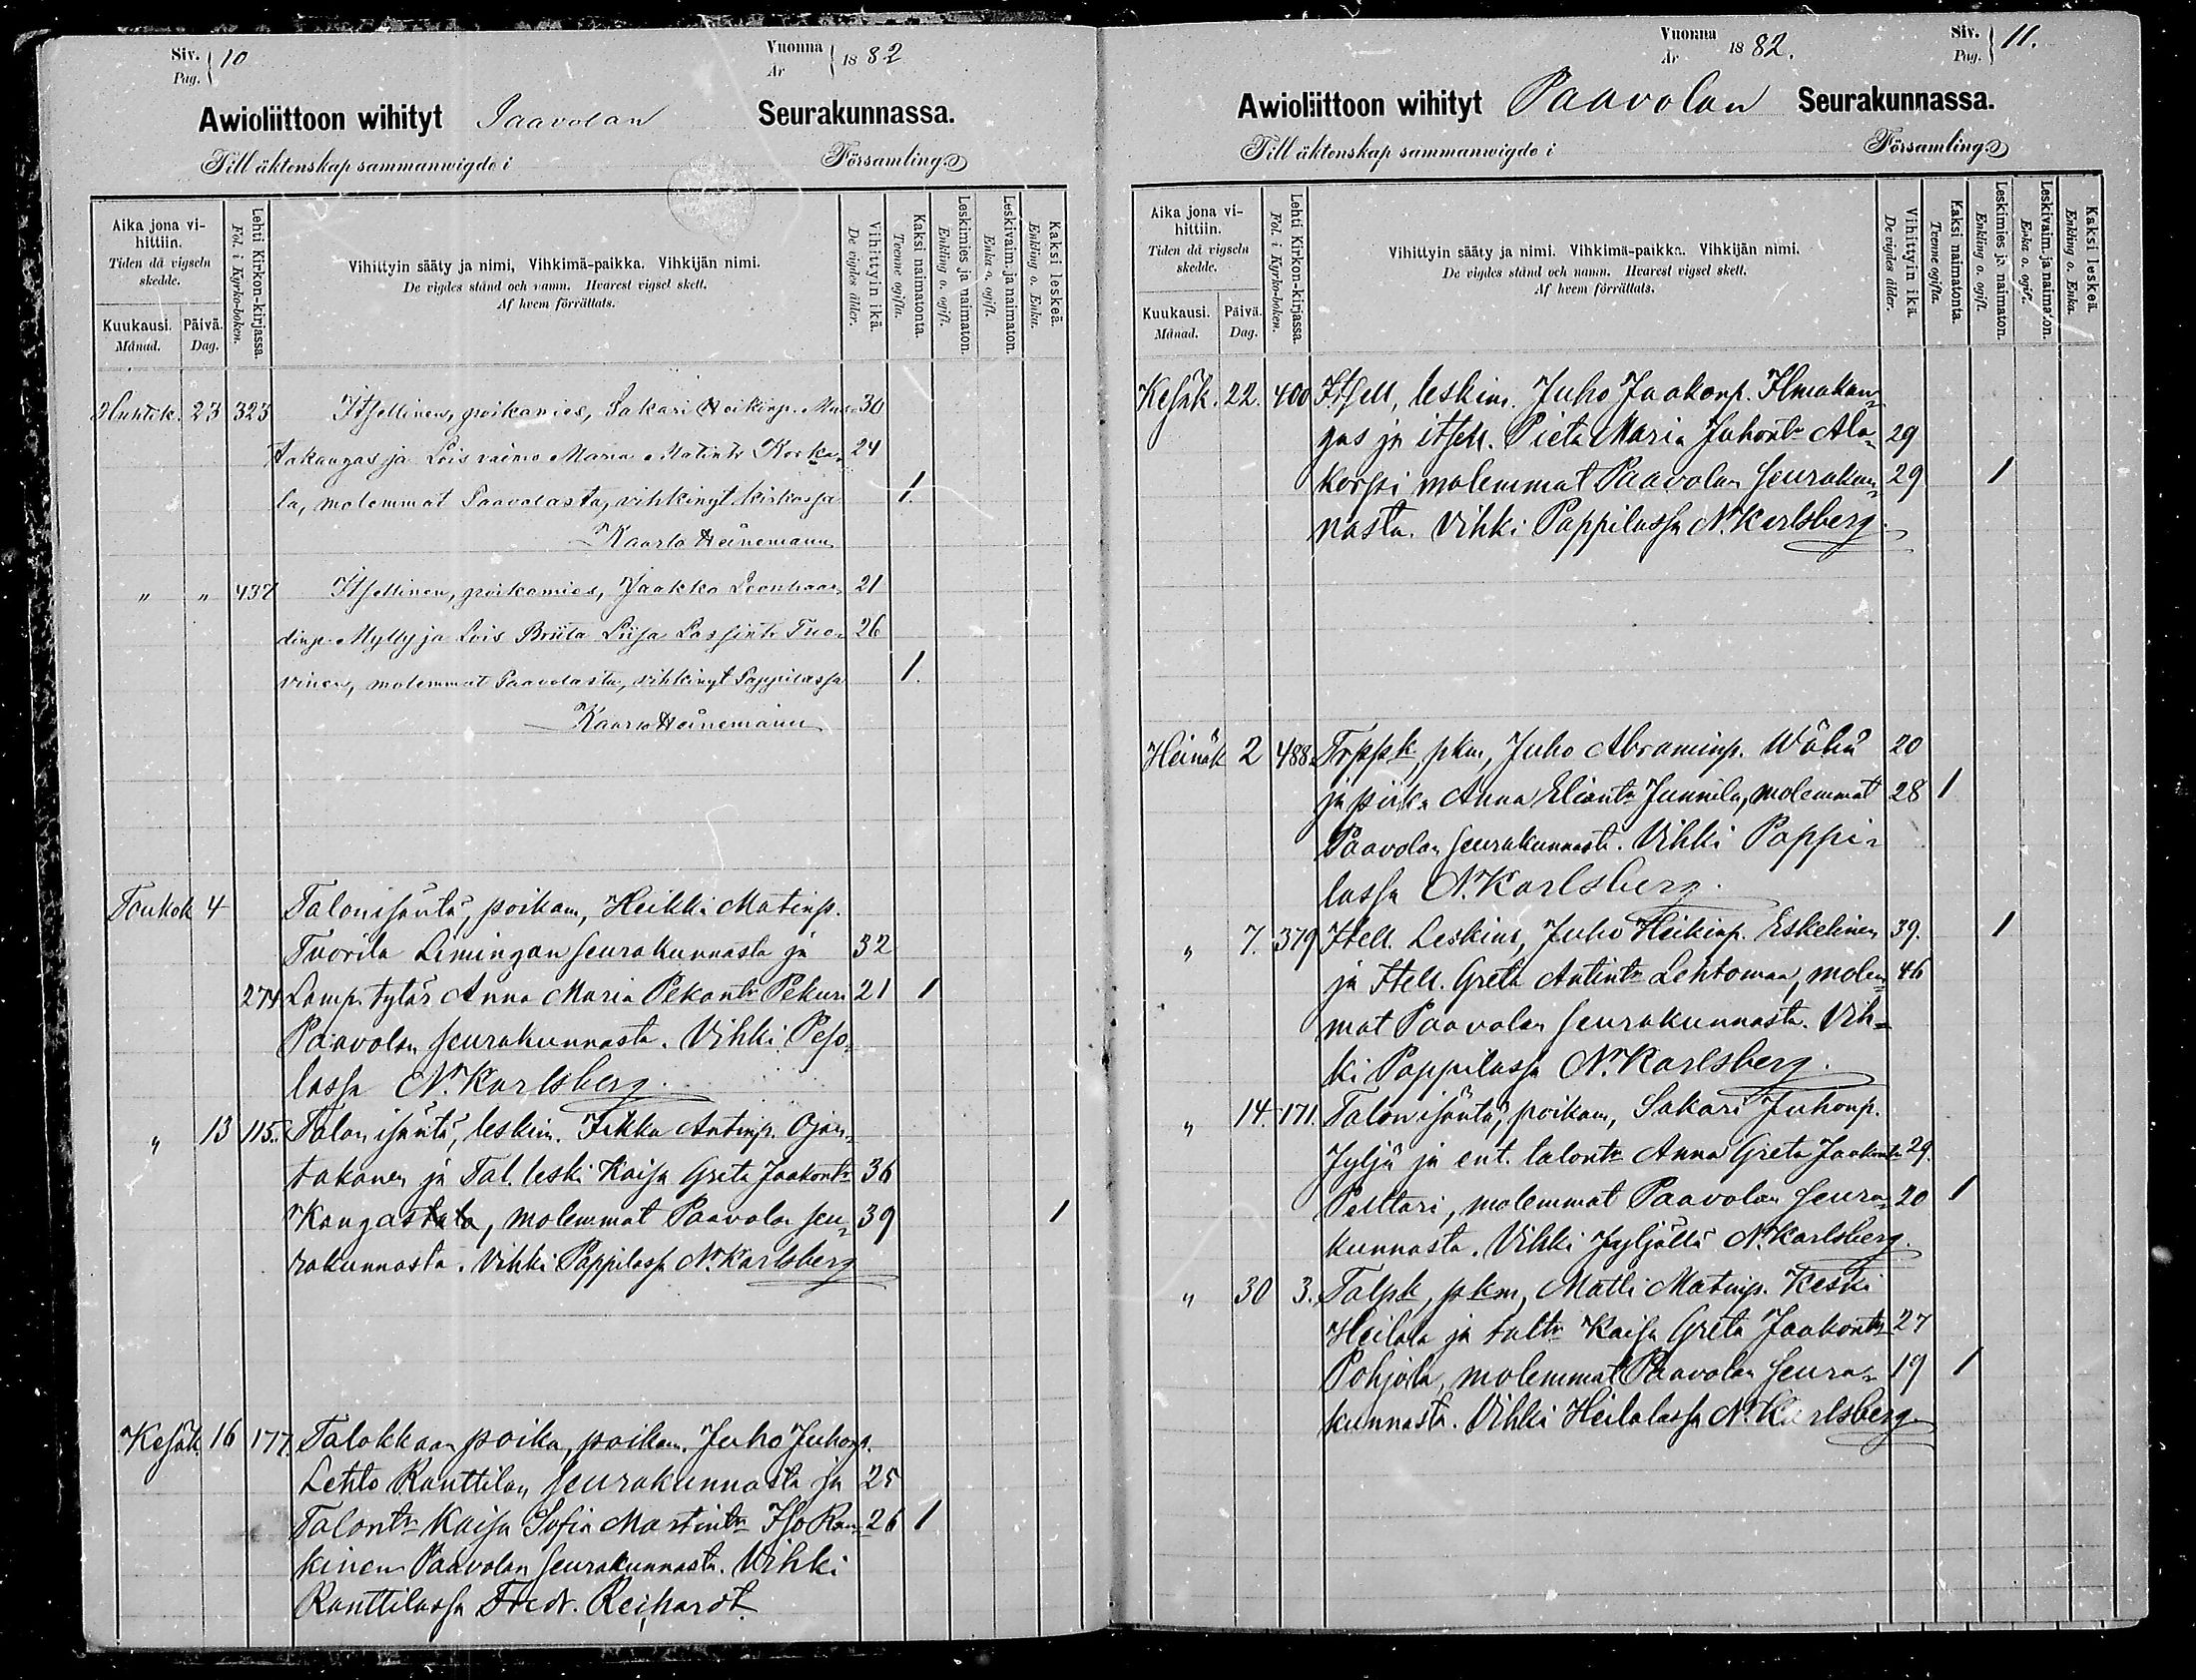 Siv. Pag. 10
Vuonna År 1882
Awioliittoon wihityt Paavolan Seurakunnassa.
Till äktenskap sammanwigde i Församling.
Aika jona vihittiin. Tiden då vigseln skedde.
Kuukausi. Månad. Päivä. Dag.
Lehti Kirkon-kirjassa. Fol. i Kyrko-boken.
Vihittyin sääty ja nimi, Vihkimä-paikka. Vihkijän nimi.
De vigdes stånd och namn. Hvarest vigsel skett.
Af hvem förrättats.
Vihittyin ikä. De vigdes ålder.
Kaksi naimatonta. Tvenne ogifta.
Leskimies ja naimaton. Enkling o. ogift.
Leskivaim. ja naimaton. Enka o. ogift.
Kaksi leskeä. Enkling o. Enka.
Huhtik. 23 323 Itsellinen, poikamies, Sakari Heikinp. 30
takangas ja Lois vaimo Maria Matintr Korka- 24
la, molemmat Paavolasta, vihkinyt kirkossa 1.
Kaarlo Heinemann
" " 437 Itsellinen, poikamies, Jaakko Leonhaar- 21
dinp. Mylly ja Lois Briita Liisa Lassintr Tuo- 26
vinen, molemmat Paavolasta, vihkinyt Pappilassa 1.
Kaarlo Heinemann
Toukok 4 Talonisäntä, poikam, Heikki Matinp.
Tuorila Limingan seurakunnasta ja 32
274 Lamp. tytär Anna Maria Pekantr Pekuri 21 1
Paavolan seurakunnasta. Vihki Peso-
lassa N. Karlsberg.
" 13 115. Talon isäntä, leskim. Iikka Antinp. Ojan-
takanen ja Tal. leski Kaisa Greta Jaakontr 36
Kangastalo, molemmat Paavolan seu- 39 1
rakunnasta. Vihki Pappilassa N. Karlsberg
Kesäk. 16 177. Talokkaan poika, poikam. Juho Juhonp.
Lehto Ranttilan seurakunnasta ja 25
Talontr Kaisa Sofia Martintr Iso Ran- 26 1
kinen Paavolan seurakunnasta. Vihki
Ranttilassa Fredr. Reihardt
Vuonna År 1882.
Siv. Pag. 11.
Awioliittoon wihityt Paavolan Seurakunnassa.
Till äktenskap sammanwigde i Församling
Aika jona vihittiin. Tiden då vigseln skedde.
Kuukausi. Månad. Päivä. Dag.
Lehti Kirkon-kirjassa. Fol. i Kyrko-boken.
Vihittyin sääty ja nimi. Vihkimä-paikka. Vihkijän nimi.
De vigdes stånd och namn. Hvarest vigsel skett.
Af hvem förrättats.
Vihittyin ikä. De vigdes ålder.
Kaksi naimatonta. Tvenne ogifta.
Leskimies ja naimaton. Enkling o. ogift.
Leskivaim. ja naimaton. Enka o. ogift.
Kaksi leskeä. Enkling o. Enka.
Kesäk. 22. 400 Itsell, leskim. Juho Jaakonp. Ilmakan-
gas ja itsell. Pieta Maria Juhontr Ala- 29
korpi molemmat Paavolan seurakun- 29 1
nasta. Vihki Pappilassa N. Karlsberg.
Heinäk 2 488. Trppk, pkm, Juho Abraminp. Wähä 20
ja piika Anna Eliantr Junnila, molemmat 28 1
Paavolan seurakunnasta. Vihki Pappi-
lassa N. Karlsberg.
" 7. 379 Itsell. Leskim, Juho Heikinp. Eskelinen 39. 1
ja Itsell. Greta Antintr Lehtomaa, molem- 46
mat Paavolan seurakunnasta. Vih-
ki Pappilassa N. Karlsberg.
" 14. 171. Talonisäntä, poikam, Sakari Juhonp.
Jyljä ja ent. talontr Anna Greta Jaakontr 29.
Pelttari, molemmat Paavolan seura- 20 1
kunnasta. Vihki Jyljällä N. Karlsberg.
" 30 3. Talpk, pkm, Matti Matinp. Keski
Heilala ja taltr Kaisa Greta Jaakontr 27
Pohjola, molemmat Paavolan seura- 19 1
kunnasta. Vihki Heilalassa N. Karlsberg